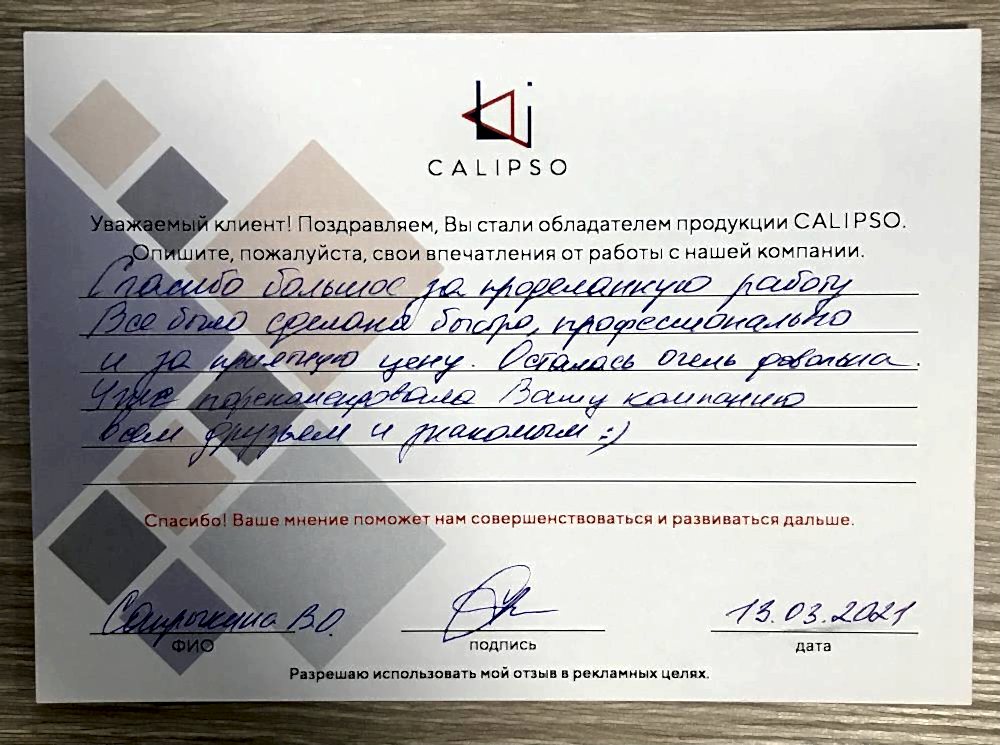 CALIPSO
Уважаемый клиент! Поздравляем, Вы стали обладателем продукции CALIPSO.
Опишите, пожалуйста, свои впечатления от работы с нашей компании.
Спасибо большое за проделанную работу
Все было сделано быстро, профессионально
и за приятную цену. Осталась очень довольна.
Уже порекомендовала Вашу компанию
всем друзьям и знакомым :)
Спасибо! Ваше мнение поможет нам совершенствоваться и развиваться дальше.
В.О. 13.03.2021
ФИО подпись дата
Разрешаю использовать мой отзыв в рекламных целях.